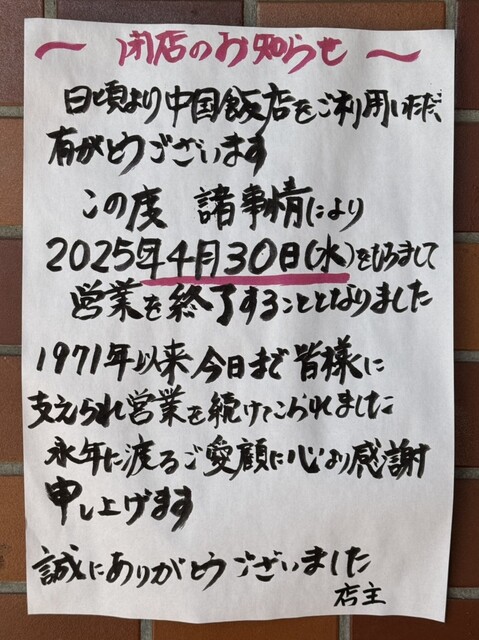 〜 閉店のお知らせ 〜
日頃より中国飯店をご利用いただ
有がとうございます
この度 諸事情により
2025年4月30日(水)をもちまして
営業を終了することとなりました
1971年以来今日まで皆様に
支えられ営業を続けてこられました
永年に渡るご愛顧に心より感謝
申し上げます
誠にありがとうございました
店主